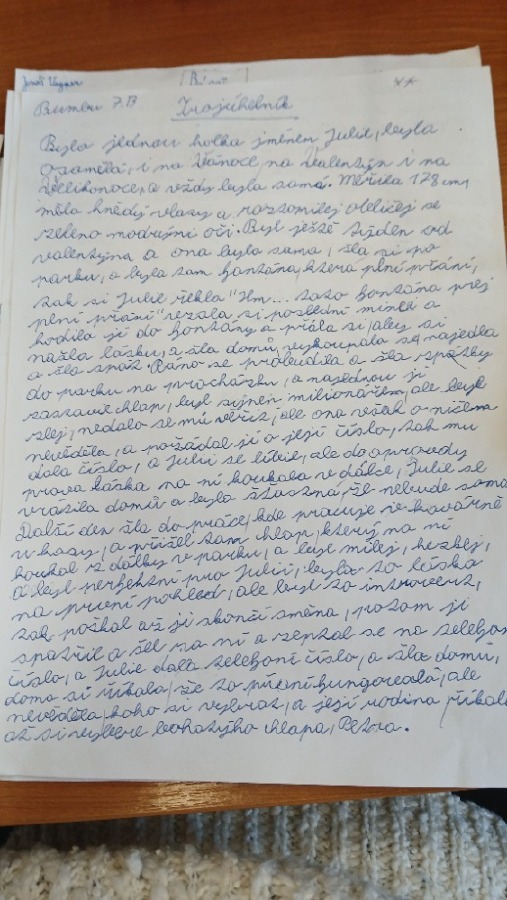 Bumbu 7.B
Trojúhelník
Byla jednou holka jménem Julie, byla
osamělá, i na Vánoce na Valentýn i na
Velikonoce, a vždy byla sama. Měřila 178 cm,
měla hnědý vlasy a roztomilej obličej se
zeleno modrými oči. Byl ještě týden od
valentýna a ona byla sama, šla si po
parku, a byla tam fontána, která plní přání,
tak si Julie řekla "Hm... tato fontána prej
plní přání" vzala si poslední minci a
hodila jí do fontány a přála si, aby si
našla lásku, a šla domů, vykoupala se, najedla
a šla spát. Ráno se probudila a šla zpátky
do parku na procházku, a najednou ji
zastavil chlap, byl synem milionářem, ale byl
zlej, nedalo se mu věřit, ale ona však o ničem
nevěděla, a požádal jí o její číslo, tak mu
dala číslo, a Julii se líbil, ale doopravdy
prava láska na ní koukala v dálce, Julie se
vrátila domů a byla šťastná, že nebude sama
Další den šla do práce, kde pracuje v kavárně
v kasy, a přišel tam chlap, který na ní
koukal z dálky v parku, a byl milej, hezkej,
A byl perfektní pro Julii, byla to láska
na první pohled, ale byl to introvert,
tak počkal až jí skončí směna, potom ji
spatřil a šel za ní a zeptal se na telefon
číslo, a Julie dala telefoní číslo, a šla domů,
doma si říkala, že to přání fungovalo, ale
nevěděla, koho si vybrat, a její rodina říkala
ať si vybere bohatýho chlapa, Petra.